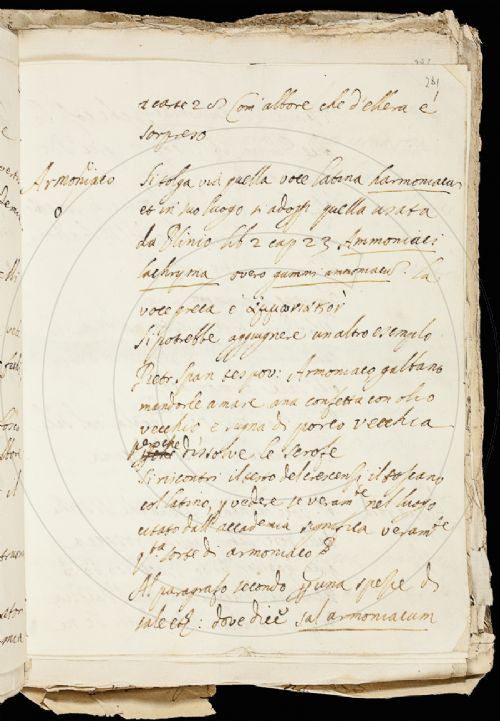 281
2 carte 28 Com' albore che d'ellera è
sorpreso
Armoniaco
Si tolga via quella voce latina harmoniacus
et in suo luogo si adopri quella usata
da Plinio lib 2 cap 23 Ammoniaci
lachryma overo gummi ammoniacū: la
voce greca è
Si potrebbe aggiugnere un altro esemplo
Pietr Span tes pov: Armoniaco galbano
mandorle amare ana confetta con olio
vecchio e sugna di porco vecchia
perochè dissolve le scrofe
Si riscontri il testo del crescenzi il toscano
col latino, p vedere se veramte nel luogo
citato dall'accademia significa veramte
qta sorte di armoniaco
Al paragrafo secondo una spezie di
sale etc: dove dice sal armoniacum